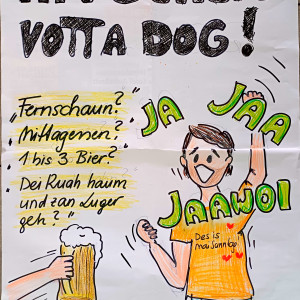 VOTTA DOG!
„Fernschaun?
Mittagenen?
1 bis 3 Bier?
Dei Ruah haum
und zan Luger
geh?"
JA JAA
JAAWOI
Des is
mei Sunntog